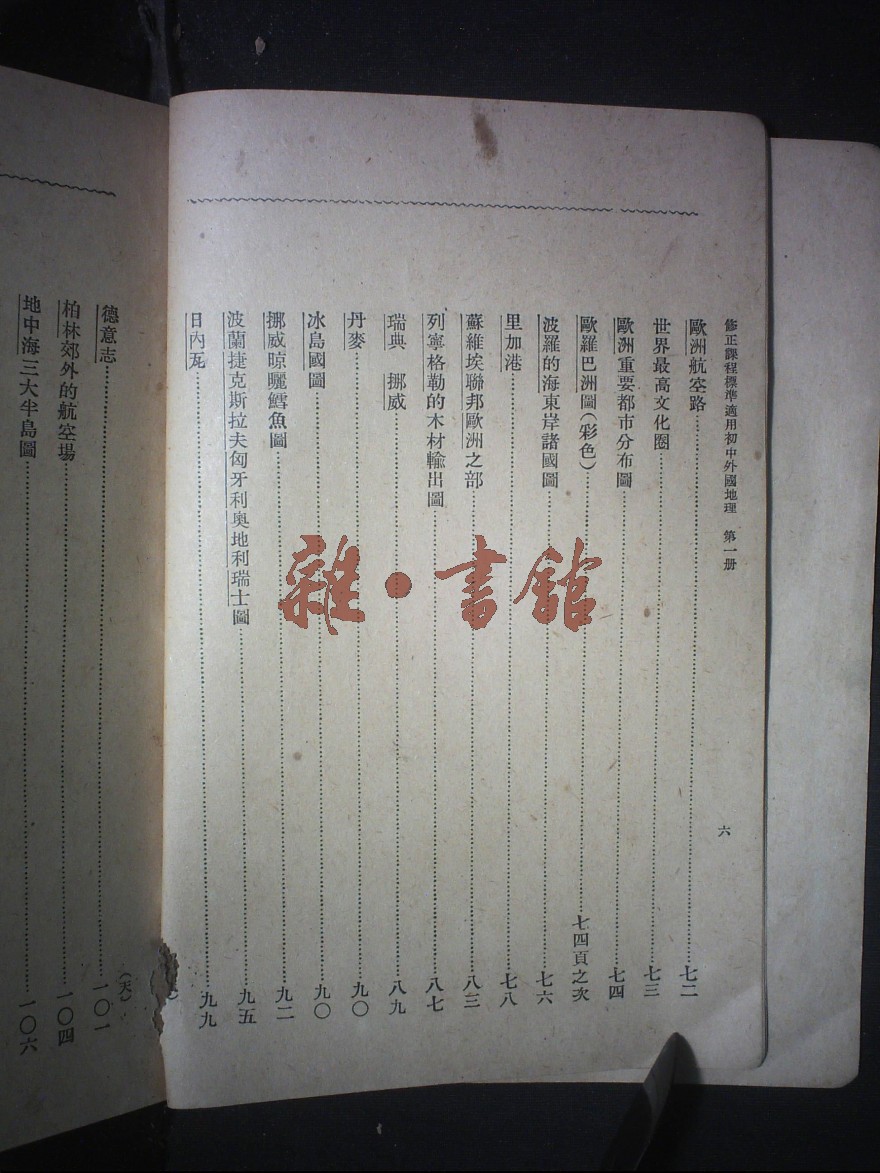 修正課程標準適用初中外國地理　第一册
六
歐洲航空路……七二
世界最高文化圈……七三
歐洲重要都市分布圖……七四
歐羅巴洲圖(彩色)……七四頁之次
波羅的海東岸諸國圖……七六
里加港……七八
蘇維埃聯邦歐洲之部……八三
列寧格勒的木材輸出圖……八七
瑞典　挪威……八九
丹麥……九〇
冰島國圖……九〇
挪威晾曬鱈魚圖……九二
波蘭捷克斯拉夫匈牙利奧地利瑞士圖……九五
日內瓦……九九
(天)
德意志……一〇一
柏林郊外的航空場……一〇四
地中海三大半島圖……一〇六
雜·書館